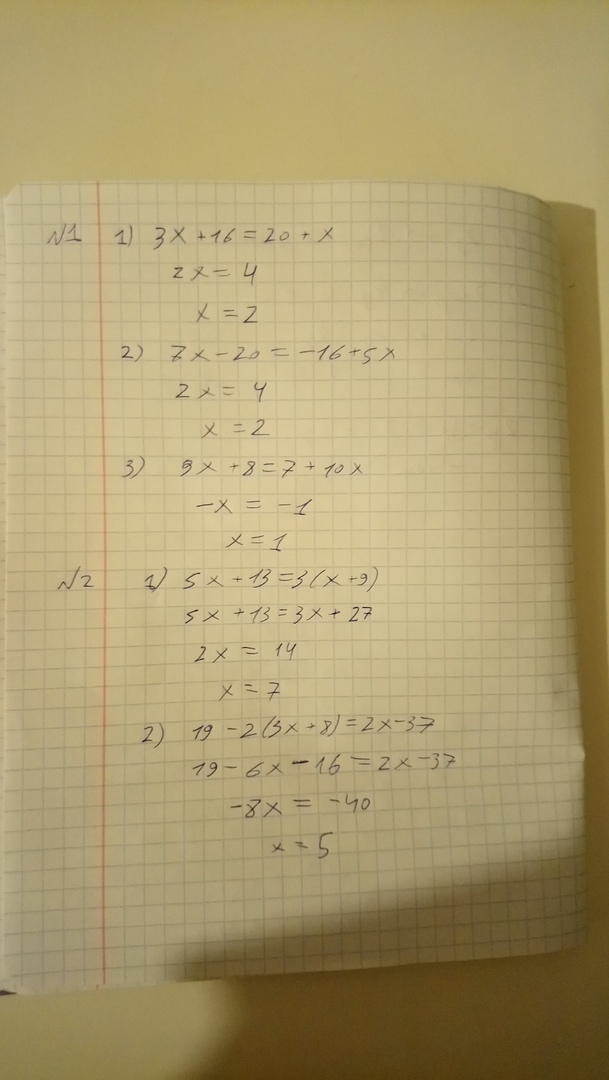 №1 1) 3x+16=20+x
2x=4
x=2
2) 7x-20=-16+5x
2x=4
x=2
3) 9x+8=7+10x
-x=-1
x=1
№2 1) 5x+13=3(x+9)
5x+13=3x+27
2x=14
x=7
2) 19-2(3x+8)=2x-37
19-6x-16=2x-37
-8x=-40
x=5